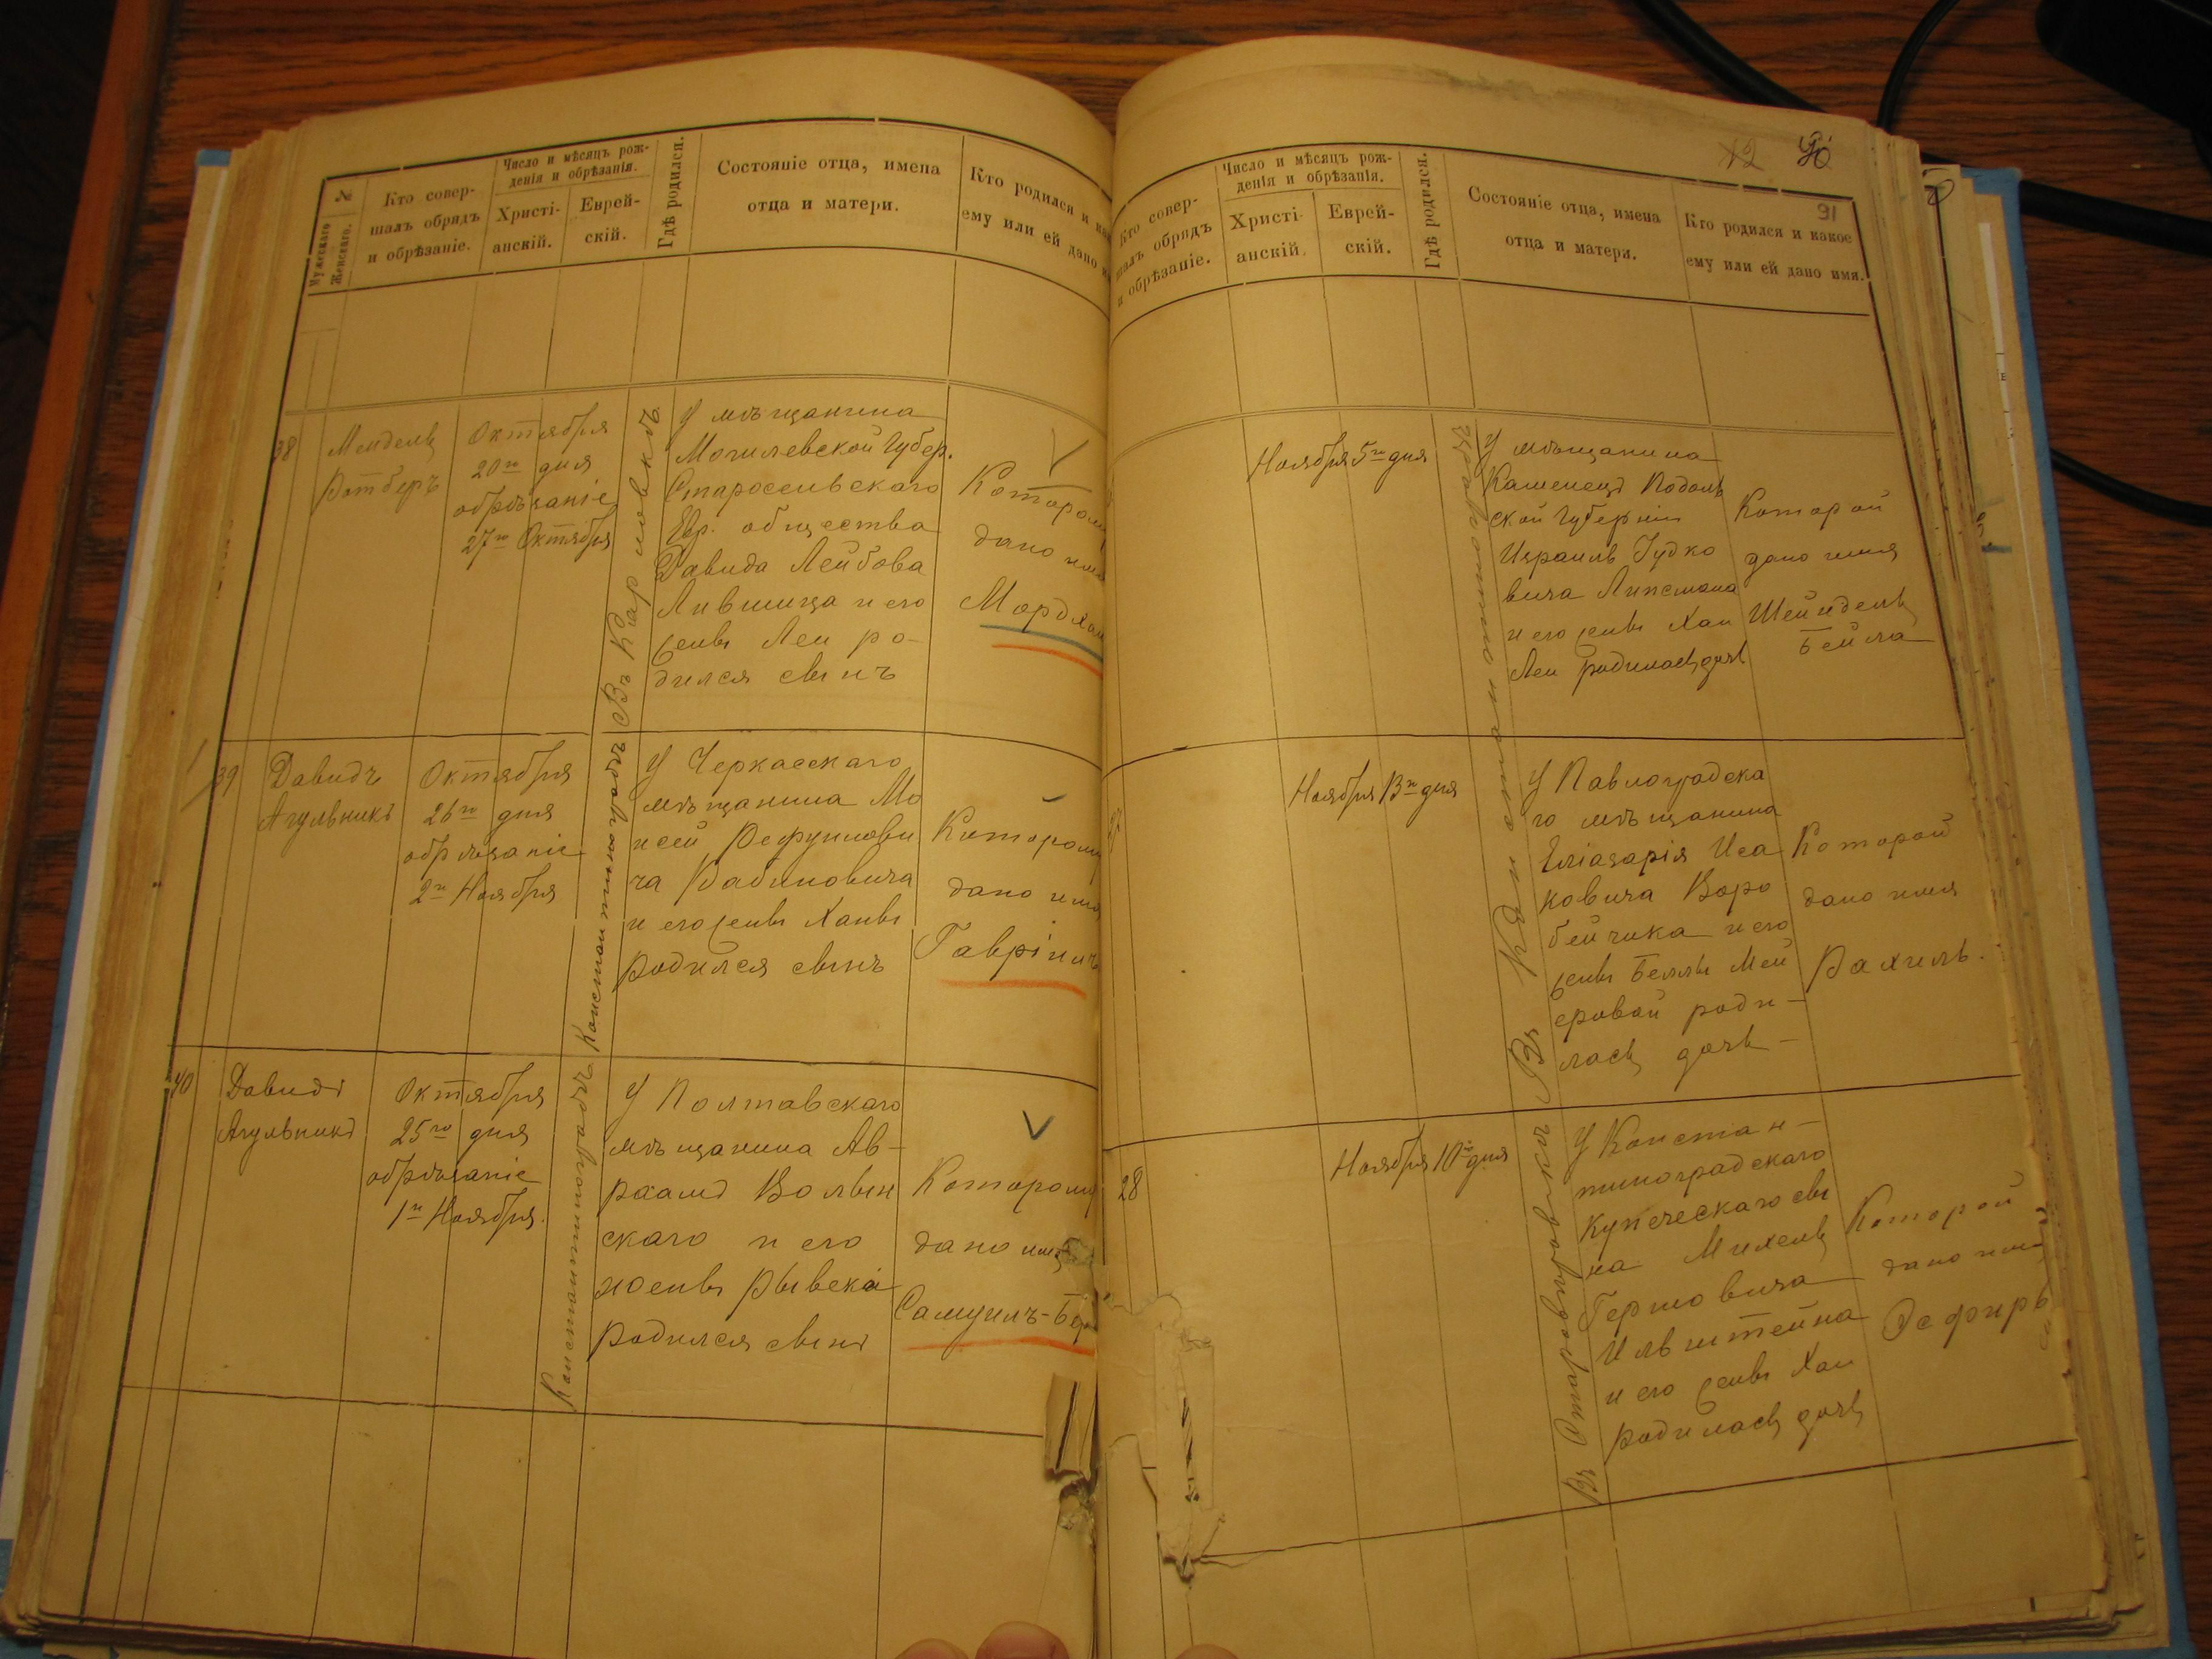 №
Мужескаго
Женскаго.
Кто совер-
шалъ обрядъ
и обрѣзаніе.
Число и мѣсяцъ рож-
денія и обрѣзанія.
Христі-
анскій.
Еврей-
скій.
Гдѣ родился.
Состояніе отца, имена
отца и матери.
Кто родился и
ему или ей дано
38
Мендель
Ротберъ
Октября
20го дня
обрѣзаніе
27го Октября
Въ Карловкѣ
У мѣщанина
Могилевской Губер.
Старосельскаго
Евр. общества
Давида Лейбова
Лившица и его
жены Леи ро-
дился сынъ
дано
39
Давидъ
Агульникъ
Октября
26го дня
обрѣзаніе
2го Ноября
Константиноградъ
У Черкасскаго
мѣщанина Мо
исей Рефуиловы
ча Рабиновича
и его жены Ханы
родился сынъ
дано
Гавріилъ
40
Давидъ
Агульникъ
Октября
25го дня
обрѣзаніе
1го Ноября.
Константиноградъ
У Полтавскаго
мѣщанина Ав-
раамъ Волын
скаго и его
жены Рывека
родился сынъ
дано
12
91
Кто совер-
шалъ обрядъ
и обрѣзаніе.
Число и мѣсяцъ рож-
денія и обрѣзанія.
Христі-
анскій.
Еврей-
скій.
Гдѣ родился.
Состояніе отца, имена
отца и матери.
Кто родился и какое
ему или ей дано имя.
Ноября 5го дня
У мѣщанина
Каменецъ Подоль
ской Губерніи
Израиль Іудко
вича Липсмана
и его жены Хаи
Леи родилась дочь
Которой
дано имя
Шейндель
Бейла
Ноября 13го дня
У Павлоградска
го мѣщанина
Еліазарія Иса
ковича Воро
бейчика и его
жены Беллы Мей
еровой роди-
лась дочь
Которой
дано имя
Рахиль.
28
Ноября 10го дня
Въ
У Констан-
тиноградскаго
купеческаго сы
на Михель
Гершовича
Ильштейна
и его жены Хаи
родилась дочь
Которой
дано имя
Эсфирь